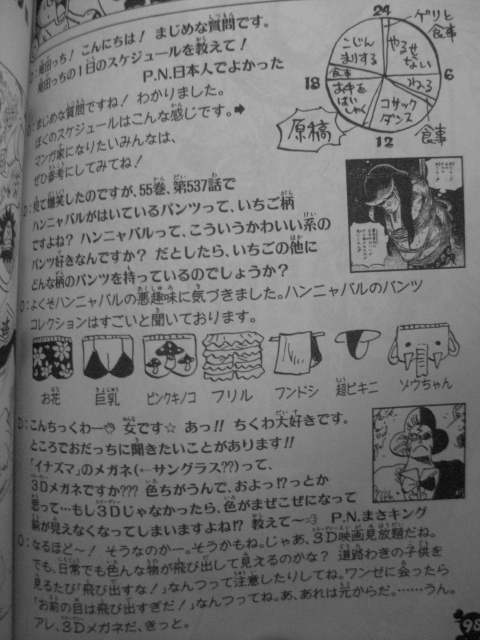 D：尾田っち！こんにちは！まじめな質問です。
尾田っちの1日のスケジュールを教えて！
P.N.日本人でよかった
O：まじめな質問ですね！わかりました。
ぼくのスケジュールはこんな感じです。➡
マンガ家になりたいみんなは、
ぜひ参考にしてみてね！
24
ゲリと食事
やるせない
6
ねる
食事
コサックダンス
12
原稿
お手をはいしゃく
18
食事
こじんまりする
D：見て爆笑したのですが、55巻、第537話で
ハンニャバルがはいているパンツって、いちご柄
ですよね？ハンニャバルって、こういうかわいい系の
パンツ好きなんですか？だとしたら、いちごの他に
どんな柄のパンツを持っているのでしょうか？
O：よくぞハンニャバルの悪趣味に気づきました。ハンニャバルのパンツ
コレクションはすごいと聞いております。
お花
巨乳
ピンクキノコ
フリル
フンドシ
超ビキニ
ゾウちゃん
D：こんちっくわー 女です☆ あっ!! ちくわ大好きです。
ところでおだっちに聞きたいことがあります!!
「イナズマ」のメガネ（←サングラス??）って、
3Dメガネですか??? 色ちがうんで、およっ!?っとか
思って…もし3Dじゃなかったら、色がまぜこぜになって
前が見えなくなってしまいますよね!? 教えて〜 P.N.まさキング
O：なるほど〜！そうなのかー。そうかもね。じゃあ、3D映画見放題だね。
でも、日常でも色んな物が飛び出して見えるのかな？ 道路わきの子供を
見るたび「飛び出すな！」なんつって注意したりしてね。ワンゼに会ったら
「お前の目は飛び出すぎだ！」なんつってね。あ、あれは元からだ。……うん。
アレ、3Dメガネだ、きっと。
98